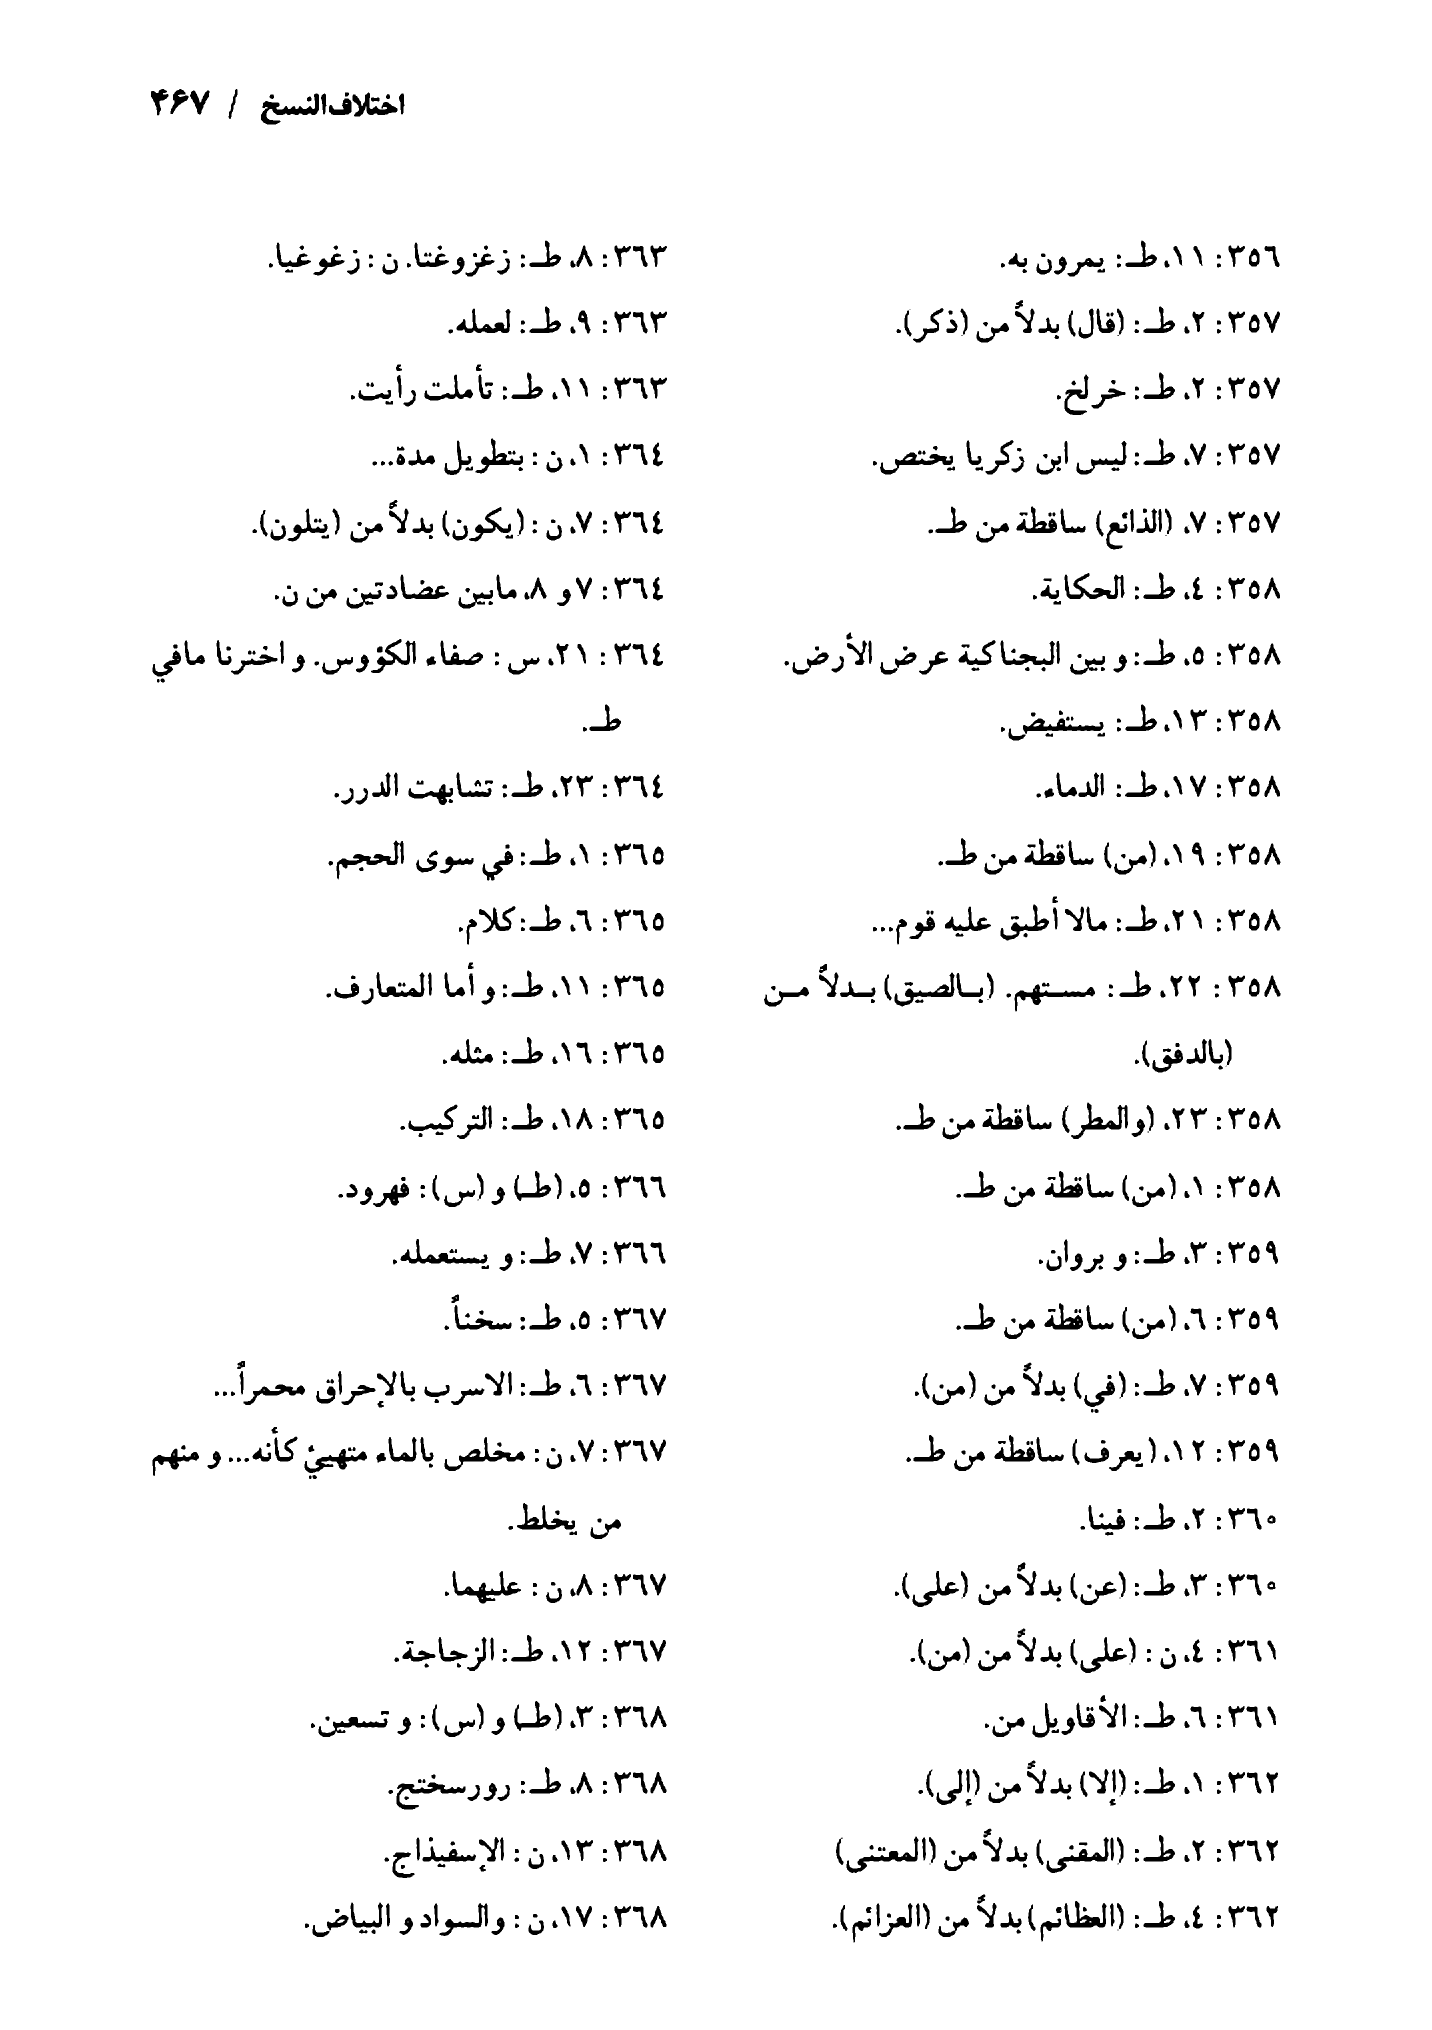 اختلاف النسخ / ۴۶۷
٣٥٦: ١١، طـ: يمرون به.
٣٥٧: ٢، طـ: (قال) بدلاً من (ذكر).
٣٥٧: ٢، طـ: خرلخ.
٣٥٧: ٧، طـ: ليس ابن زكريا يختص.
٣٥٧: ٧، (الذائع) ساقطة من طـ.
٣٥٨: ٤، طـ: الحكاية.
٣٥٨: ٥، طـ: و بين البجناكية عرض الأرض.
٣٥٨: ١٣، طـ: يستفيض.
٣٥٨: ١٧، طـ: الدماء.
٣٥٨: ١٩، (من) ساقطة من طـ.
٣٥٨: ٢١، طـ: مالا أطبق عليه قوم...
٣٥٨: ٢٢، طـ: مستهم. (بالصيق) بدلاً من
(بالدفق).
٣٥٨: ٢٣، (والمطر) ساقطة من طـ.
٣٥٨: ١، (من) ساقطة من طـ.
٣٥٩: ٣، طـ: و بروان.
٣٥٩: ٦، (من) ساقطة من طـ.
٣٥٩: ٧، طـ: (في) بدلاً من (من).
٣٥٩: ١٢، (يعرف) ساقطة من طـ.
٣٦٠: ٢، طـ: فينا.
٣٦٠: ٣، طـ: (عن) بدلاً من (على).
٣٦١: ٤، ن: (على) بدلاً من (من).
٣٦١: ٦، طـ: الأقاويل من.
٣٦٢: ١، طـ: (إلا) بدلاً من (إلى).
٣٦٢: ٢، طـ: (المقنى) بدلاً من (المعتنى)
٣٦٢: ٤، طـ: (العظائم) بدلاً من (العزائم).
٣٦٣: ٨، طـ: زغزوغتا. ن: زغوغيا.
٣٦٣: ٩، طـ: لعمله.
٣٦٣: ١١، طـ: تأملت رأيت.
٣٦٤: ١، ن: بتطويل مدة...
٣٦٤: ٧، ن: (يكون) بدلاً من (يتلون).
٣٦٤: ٧ و ٨، مابين عضادتين من ن.
٣٦٤: ٢١، س: صفاء الكؤوس. و اخترنا مافي
طـ.
٣٦٤: ٢٣، طـ: تشابهت الدرر.
٣٦٥: ١، طـ: في سوى الحجم.
٣٦٥: ٦، طـ: كلام.
٣٦٥: ١١، طـ: و أما المتعارف.
٣٦٥: ١٦، طـ: مثله.
٣٦٥: ١٨، طـ: التركيب.
٣٦٦: ٥، (طـ) و (س): فهرود.
٣٦٦: ٧، طـ: و يستعمله.
٣٦٧: ٥، طـ: سخناً.
٣٦٧: ٦، طـ: الاسرب بالإحراق محمراً...
٣٦٧: ٧، ن: مخلص بالماء متهيئ كأنه... و منهم
من يخلط.
٣٦٧: ٨، ن: عليهما.
٣٦٧: ١٢، طـ: الزجاجة.
٣٦٨: ٣، (طـ) و (س): و تسعين.
٣٦٨: ٨، طـ: رورسختج.
٣٦٨: ١٣، ن: الإسفيذاج.
٣٦٨: ١٧، ن: والسواد و البياض.